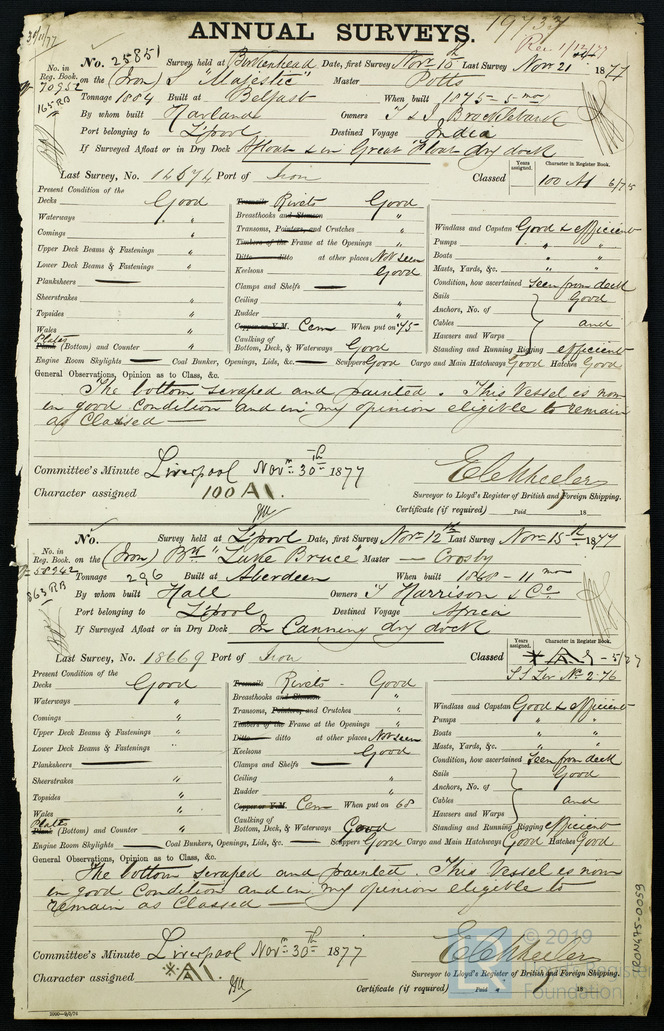 ANNUAL SURVEYS.
19733
30/11/77
Rec 1/12/77
No. 25851 Survey held at Birkenhead Date, first Survey Novr 10th Last Survey Novr 21 1877
No. in Reg. Book. 70952 on the (Iron) S "Majestic" Master Potts
165 RB
Tonnage 1884 Built at Belfast When built 1875 - 5 mo
By whom built Harland Owners T & J Brocklebank
Port belonging to L'pool Destined Voyage India
If Surveyed Afloat or in Dry Dock Afloat & in Great Float dry dock
Years assigned. Character in Register Book.
Last Survey, No. 12674 Port of Iron Classed 100 A1 6/75
Present Condition of the
Decks Good Treenails Rivets Good
Waterways " Breasthooks and Stemson "
Comings " Transoms, Pointers, and Crutches "
Upper Deck Beams & Fastenings " Timbers of the Frame at the Openings "
Lower Deck Beams & Fastenings " Ditto ditto at other places Not seen
Planksheers — Keelsons Good
Sheerstrakes " Clamps and Shelfs —
Topsides " Ceiling "
Wales " Rudder "
Plates Plank (Bottom) and Counter " Copper or Y.M. Cem When put on '75
Caulking of Bottom, Deck, & Waterways Good
Windlass and Capstan Good & efficient
Pumps " "
Boats " "
Masts, Yards, &c. " "
Condition, how ascertained Seen from deck
Sails Good
Anchors, No. of
Cables and
Hawsers and Warps
Standing and Running Rigging efficient
Engine Room Skylights — Coal Bunker, Openings, Lids, &c. — Scuppers Good Cargo and Main Hatchways Good Hatches Good
General Observations, Opinion as to Class, &c.
The bottom scraped and painted. This Vessel is now
in good Condition and in my opinion eligible to remain
as Classed —
Committee's Minute Liverpool Novr 30th 1877
Character assigned 100 A1.
E C Wheeler
Surveyor to Lloyd's Register of British and Foreign Shipping.
Certificate (if required) Paid 18
No. Survey held at L'pool Date, first Survey Nov 12th Last Survey Nov 15th 1877
No. in Reg. Book. 58242 on the (Iron) Bk "Luke Bruce" Master — Crosby
863 RB
Tonnage 296 Built at Aberdeen When built 1868 - 11 mo
By whom built Hall Owners T Harrison & Co
Port belonging to L'pool Destined Voyage Africa
If Surveyed Afloat or in Dry Dock In Canning dry dock
Years assigned. Character in Register Book.
Last Survey, No. 18669 Port of Iron Classed
SS Lev No 2-76
Present Condition of the
Decks Good Treenails Rivets - Good
Waterways " Breasthooks and Stemson "
Comings " Transoms, Pointers, and Crutches "
Upper Deck Beams & Fastenings " Timbers of the Frame at the Openings "
Lower Deck Beams & Fastenings " Ditto ditto at other places Not seen
Planksheers — Keelsons Good
Sheerstrakes " Clamps and Shelfs —
Topsides " Ceiling "
Wales " Rudder "
Plate Plank (Bottom) and Counter " Copper or Y.M. Cem When put on 68
Caulking of Bottom, Deck, & Waterways Good
Windlass and Capstan Good & efficient
Pumps " "
Boats " "
Masts, Yards, &c. " "
Condition, how ascertained Seen from deck
Sails Good
Anchors, No. of
Cables and
Hawsers and Warps
Standing and Running Rigging efficient
Engine Room Skylights — Coal Bunkers, Openings, Lids, &c. — Scuppers Good Cargo and Main Hatchways Good Hatches Good
General Observations, Opinion as to Class, &c.
The bottom scraped and painted. This Vessel is now
in good Condition and in my opinion eligible to
remain as Classed —
Committee's Minute Liverpool Novr 30th 1877
Character assigned
E C Wheeler
Surveyor to Lloyd's Register of British and Foreign Shipping.
Certificate (if required) Paid 18
IRON475-0059
© 2019
Lloyd's Register
Foundation